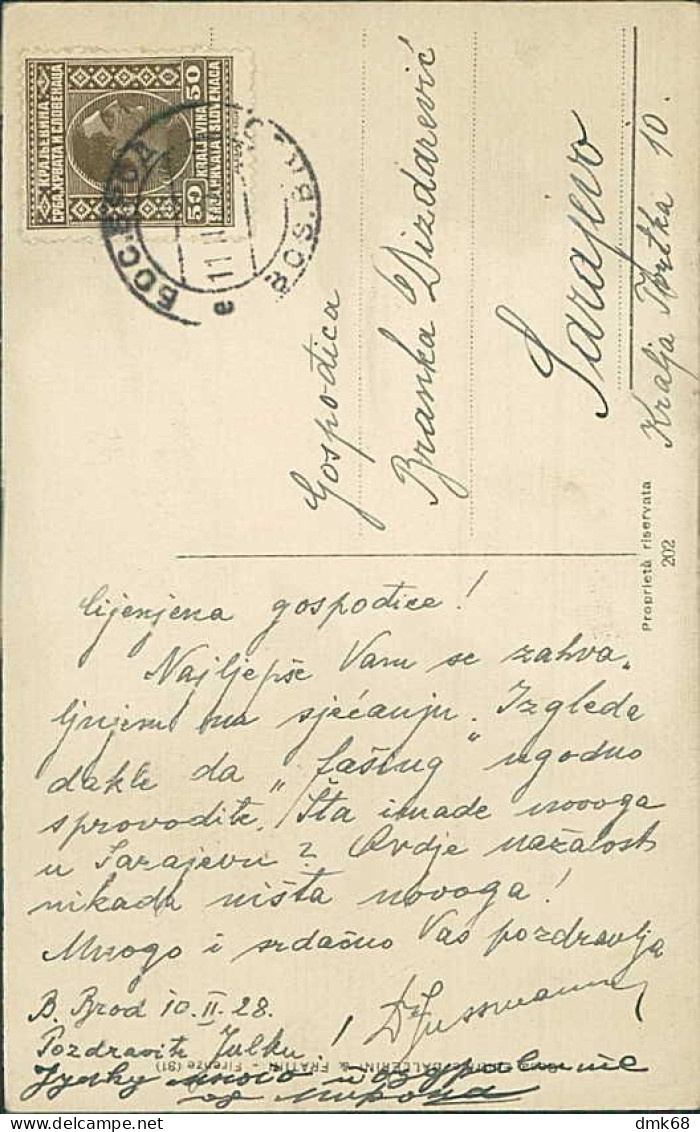 КРАЉЕВИНА
СРБА, ХРВАТА И СЛОВЕНАЦА
50 50
KRALJEVINA
SRBA, HRVATA I SLOVENACA
БОС. БРОД
BOS. BROD
e 11 II
Gospođica
Branka Dizdarević
Sarajevo
Kralja Tvrtka 10.
Proprietà riservata
202
Cijenjena gospođice!
Najljepše Vam se zahva-
ljujem na sjećanju. Izgleda
dakle da „fašing" ugodno
sprovodite. Šta imade novoga
u Sarajevu? Ovdje nažalost
nikada ništa novoga!
Mnogo i srdačno Vas pozdravlja
B. Brod 10. II. 28.
Pozdravite Julku!
BALLERINI & FRATINI - Firenze (81)